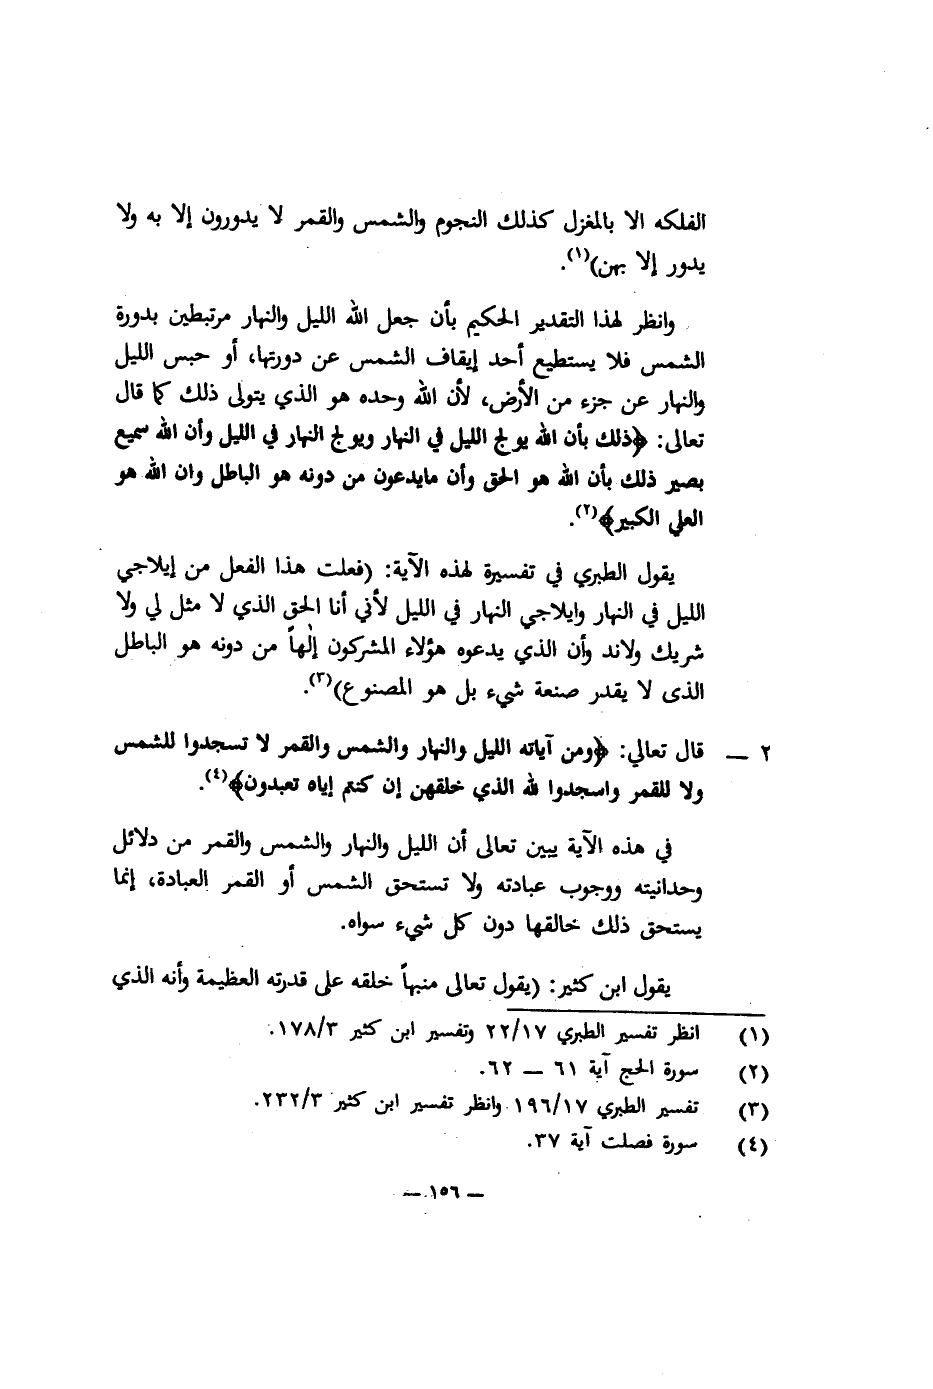 الفلكه الا بالمغزل كذلك النجوم والشمس والقمر لا يدورون إلا به ولا
يدور إلا بهن)(١).
وانظر لهذا التقدير الحكيم بأن جعل الله الليل والنهار مرتبطين بدورة
الشمس فلا يستطيع أحد إيقاف الشمس عن دورتها، أو حبس الليل
والنهار عن جزء من الأرض، لأن الله وحده هو الذي يتولى ذلك كما قال
تعالى: ﴿ذلك بأن الله يولج الليل في النهار ويولج النهار في الليل وأن الله سميع
بصير ذلك بأن الله هو الحق وأن مايدعون من دونه هو الباطل وان الله هو
العلي الكبير﴾(٢).
يقول الطبري في تفسيرة لهذه الآية: (فعلت هذا الفعل من إيلاجي
الليل في النهار وايلاجي النهار في الليل لأني أنا الحق الذي لا مثل لي ولا
شريك ولاند وأن الذي يدعوه هؤلاء المشركون إلٰهاً من دونه هو الباطل
الذى لا يقدر صنعة شيء بل هو المصنوع)(٣).
٢ — قال تعالي: ﴿ومن آياته الليل والنهار والشمس والقمر لا تسجدوا للشمس
ولا للقمر واسجدوا لله الذي خلقهن إن كنتم إياه تعبدون﴾(٤).
في هذه الآية يبين تعالى أن الليل والنهار والشمس والقمر من دلائل
وحدانيته ووجوب عبادته ولا تستحق الشمس أو القمر العبادة، إنما
يستحق ذلك خالقها دون كل شيء سواه.
يقول ابن كثير: (يقول تعالى منبهاً خلقه على قدرته العظيمة وأنه الذي
(١) انظر تفسير الطبري ٢٢/١٧ وتفسير ابن كثير ١٧٨/٣.
(٢) سورة الحج آية ٦١ — ٦٢.
(٣) تفسير الطبري ١٩٦/١٧ وانظر تفسير ابن كثير ٢٣٢/٣.
(٤) سورة فصلت آية ٣٧.
— ١٥٦ —